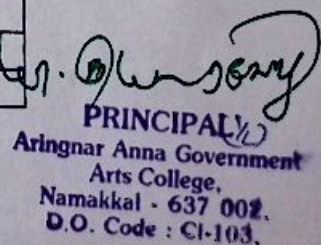 PRINCIPAL
Aringnar Anna Government
Arts College,
Namakkal - 637 002.
D.O. Code : CI-103.